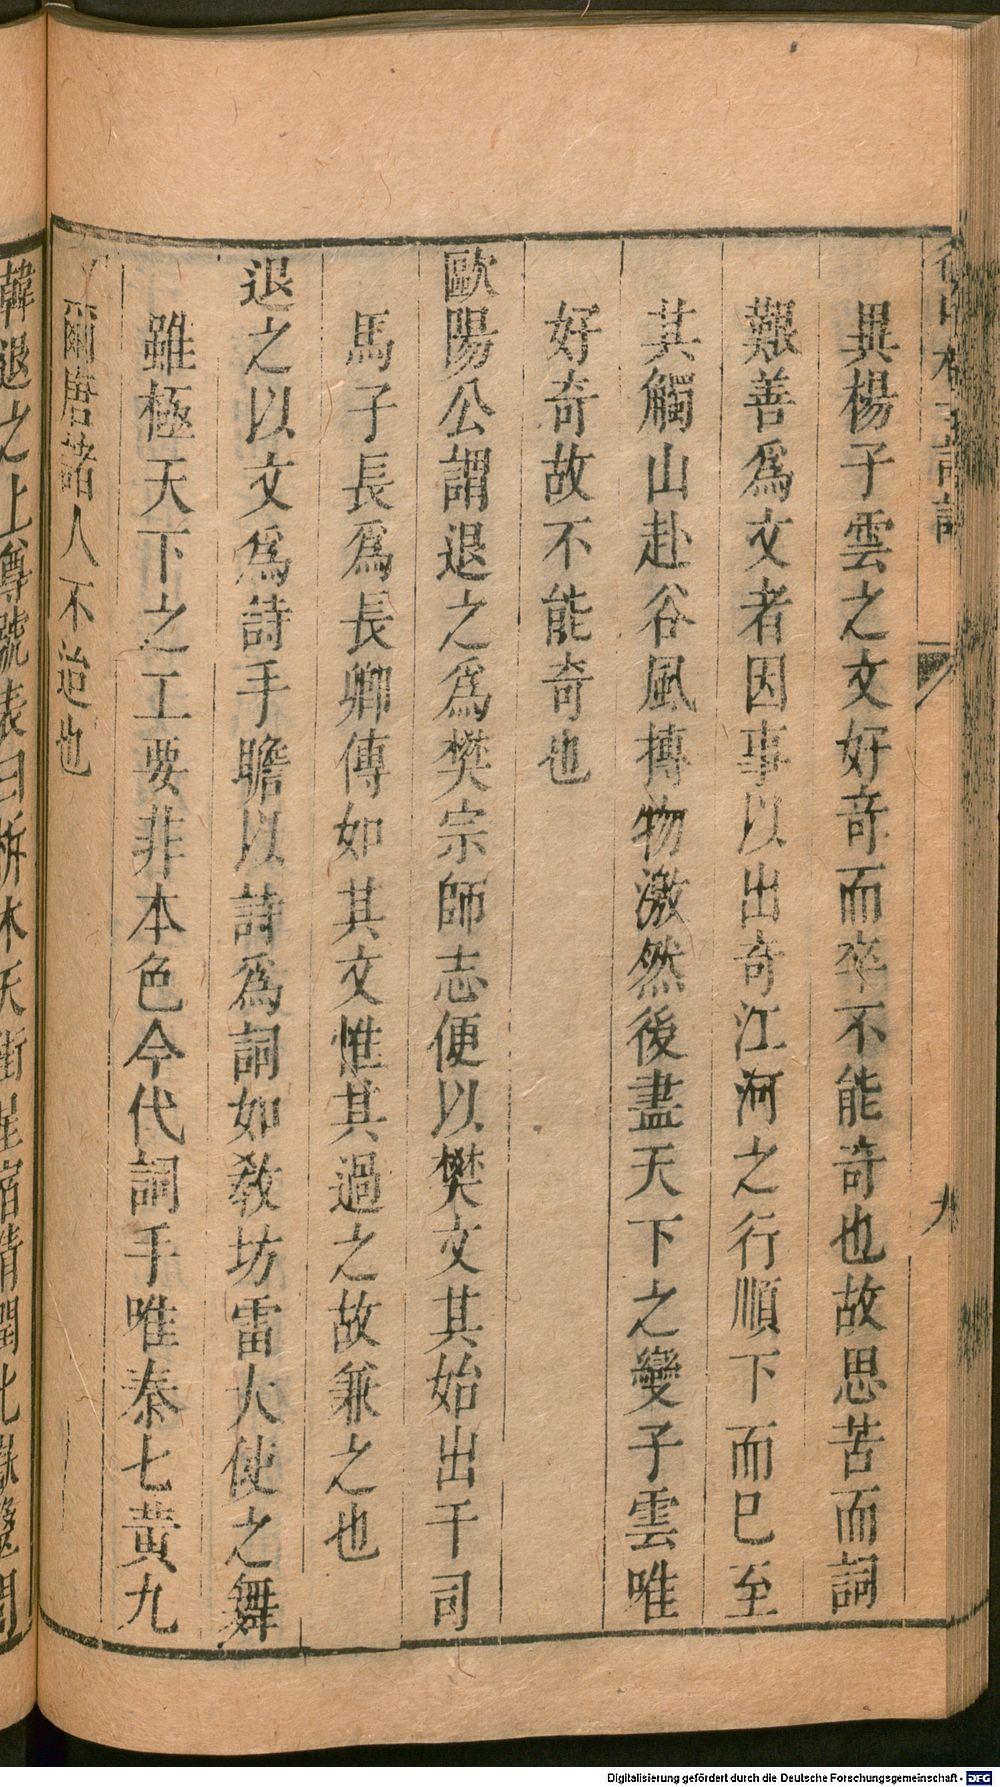 異楊子雲之文好奇而卒不能奇也故思苦而詞
艱善爲文者因事以出奇江河之行順下而已至
其觸山赴谷風搏物激然後盡天下之變子雲唯
好奇故不能奇也
歐陽公謂退之爲樊宗師志便以樊文其始出于司
馬子長爲長卿傳如其文惟其過之故兼之也
退之以文爲詩子瞻以詩爲詞如敎坊雷大使之舞
雖極天下之工要非本色今代詞手唯秦七黃九
爾唐諸人不迨也
韓退之上尊號表曰析木天街星宿清潤北嶽醫閭
九
Digitalisierung gefördert durch die Deutsche Forschungsgemeinschaft - DFG